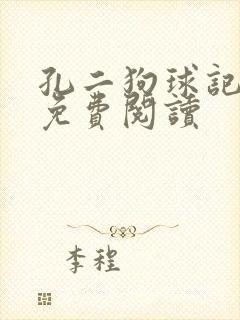 孔二狗球記
免費閱讀
李程